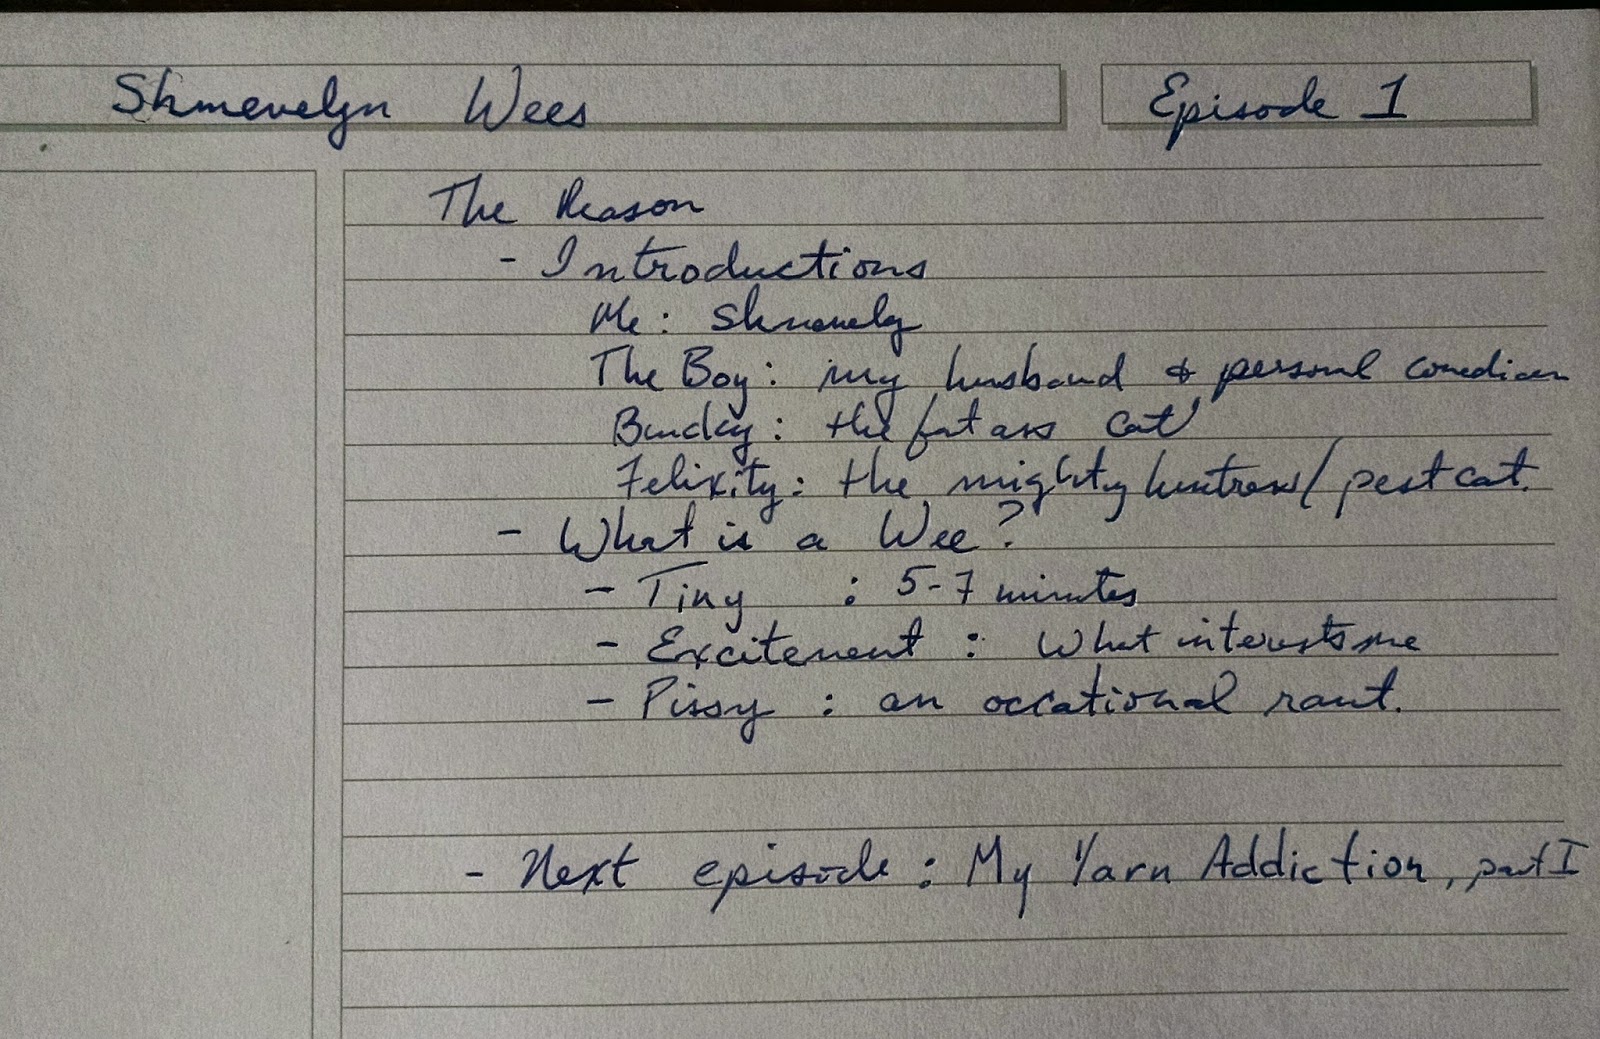 Shmevelyn Wees Episode 1
The Reason
- Introductions
Me: Shmevely
The Boy: my husband & personal comedian
: the fat ass cat
Felixity: the mighty huntress/pest cat.
- What is a Wee?
- Tiny : 5-7 minutes
- Excitement : What interests me
- Pissy : an occational rant.
- Next episode : My Yarn Addiction, part I